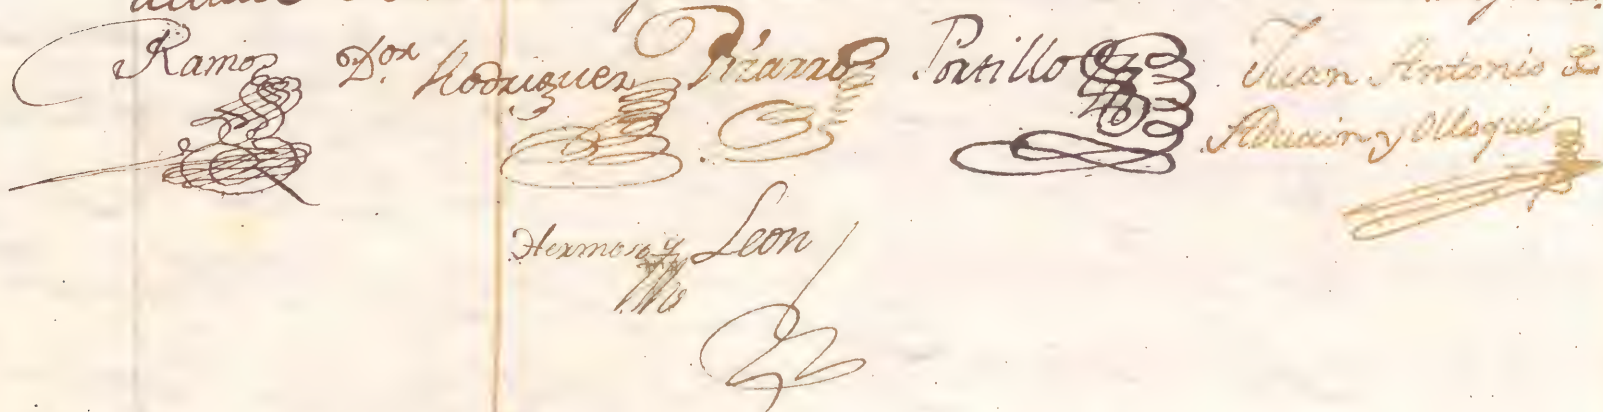 Ramos Dor. Rodriguez Pizarro Portillo Juan Antonio de
Aduain y Olloqui
Hermoso y Leon